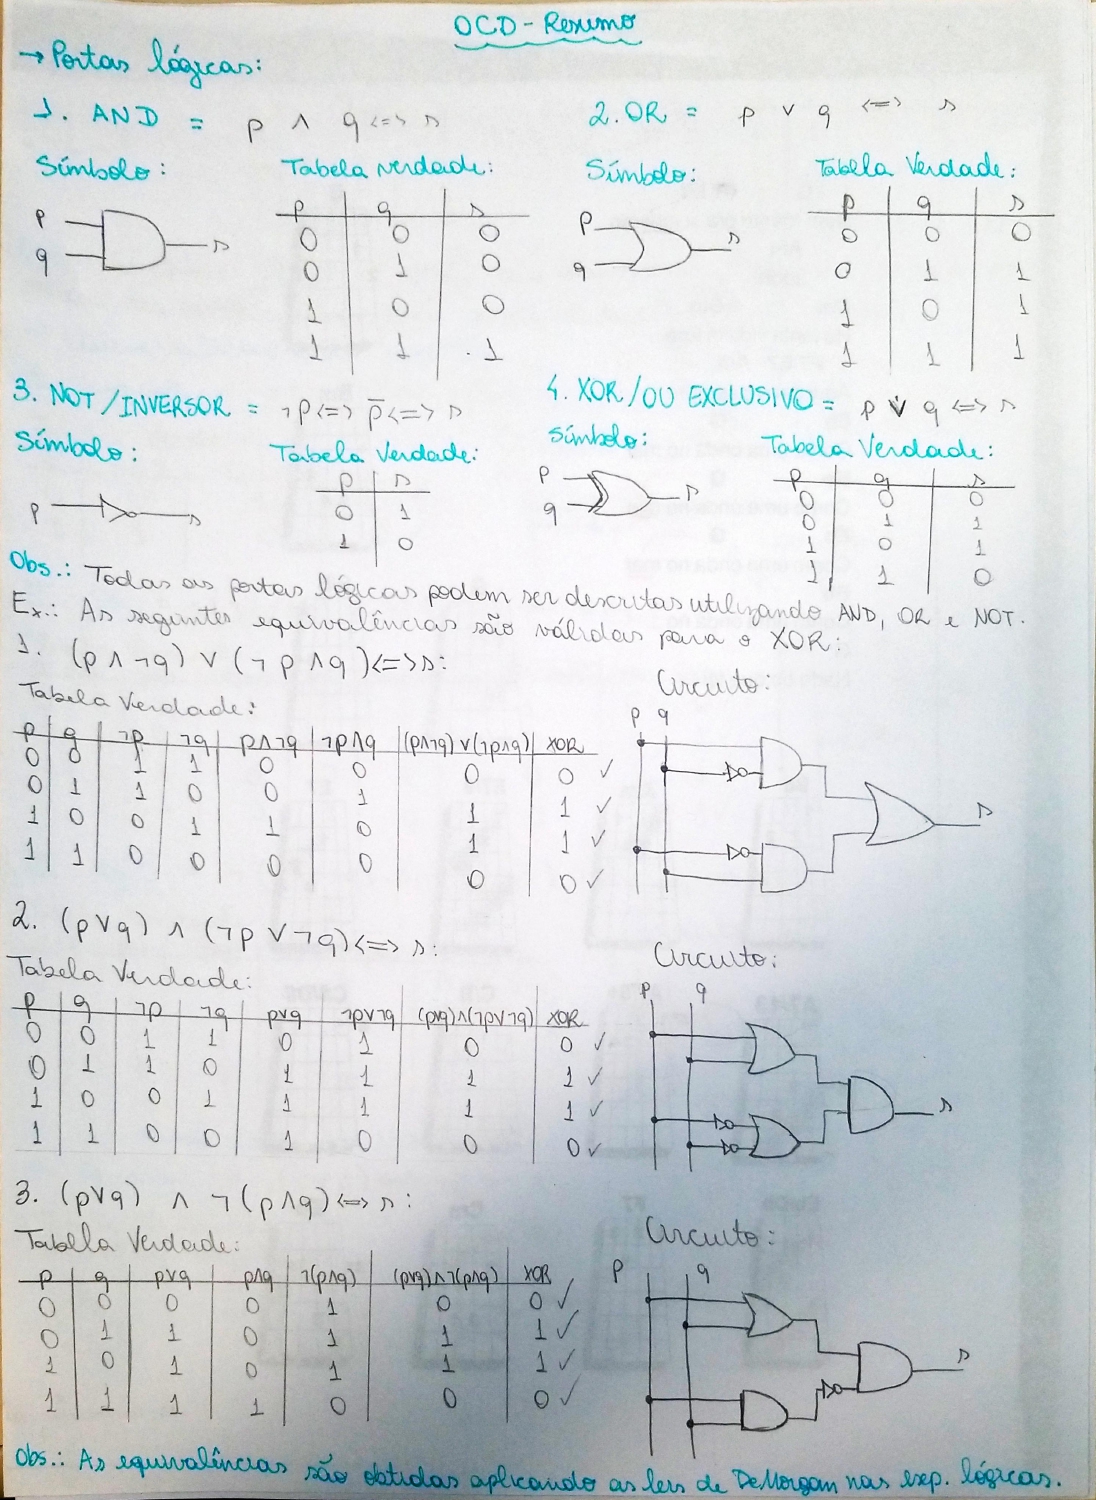 OCD - Resumo
→ Portas lógicas:
1. AND = p ∧ q <=> s
Símbolo:
Tabela verdade:
p
q
s
p q s
0 0 0
0 1 0
1 0 0
1 1 1
2. OR = p ∨ q <=> s
Símbolo:
Tabela Verdade:
p
q
s
p q s
0 0 0
0 1 1
1 0 1
1 1 1
3. NOT/INVERSOR = ¬p <=> p̄ <=> s
Símbolo:
Tabela Verdade:
p s
p s
0 1
1 0
4. XOR/OU EXCLUSIVO = p v̇ q <=> s
Símbolo:
Tabela Verdade:
p
q
s
p q s
0 0 0
0 1 1
1 0 1
1 1 0
Obs.: Todas as portas lógicas podem ser descritas utilizando AND, OR e NOT.
Ex.: As seguintes equivalências são válidas para o XOR:
1. (p ∧ ¬q) ∨ (¬p ∧ q) <=> s:
Tabela Verdade:
p q ¬p ¬q p∧¬q ¬p∧q (p∧¬q)∨(¬p∧q) XOR
0 0 1 1 0 0 0 0 ✓
0 1 1 0 0 1 1 1 ✓
1 0 0 1 1 0 1 1 ✓
1 1 0 0 0 0 0 0 ✓
Circuito:
p q
s
2. (p∨q) ∧ (¬p ∨ ¬q) <=> s:
Tabela Verdade:
p q ¬p ¬q p∨q ¬p∨¬q (p∨q)∧(¬p∨¬q) XOR
0 0 1 1 0 1 0 0 ✓
0 1 1 0 1 1 1 1 ✓
1 0 0 1 1 1 1 1 ✓
1 1 0 0 1 0 0 0 ✓
Circuito:
p q
s
3. (p∨q) ∧ ¬(p∧q) <=> s:
Tabela Verdade:
p q p∨q p∧q ¬(p∧q) (p∨q)∧¬(p∧q) XOR
0 0 0 0 1 0 0 ✓
0 1 1 0 1 1 1 ✓
1 0 1 0 1 1 1 ✓
1 1 1 1 0 0 0 ✓
Circuito:
p q
s
Obs.: As equivalências são obtidas aplicando as leis de DeMorgan nas exp. lógicas.